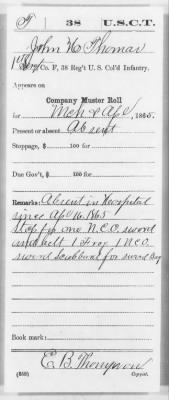 T | 38 | U.S.C.T.
John W. Thomas
1st Sergt, Co. F, 38 Reg't U. S. Col'd Infantry.
Appears on
Company Muster Roll
for Mch & Apl, 1865.
Present or absent Absent
Stoppage, $ 100 for
Due Gov't, $ 100 for
Remarks: Absent in Hospital
since Apl 16. 1865
Stop for one N.C.O. sword
and belt 1 Frog 1 N.C.O.
sword Scabbard for
Book mark:
E. B. Thompson
(859) Copyist.